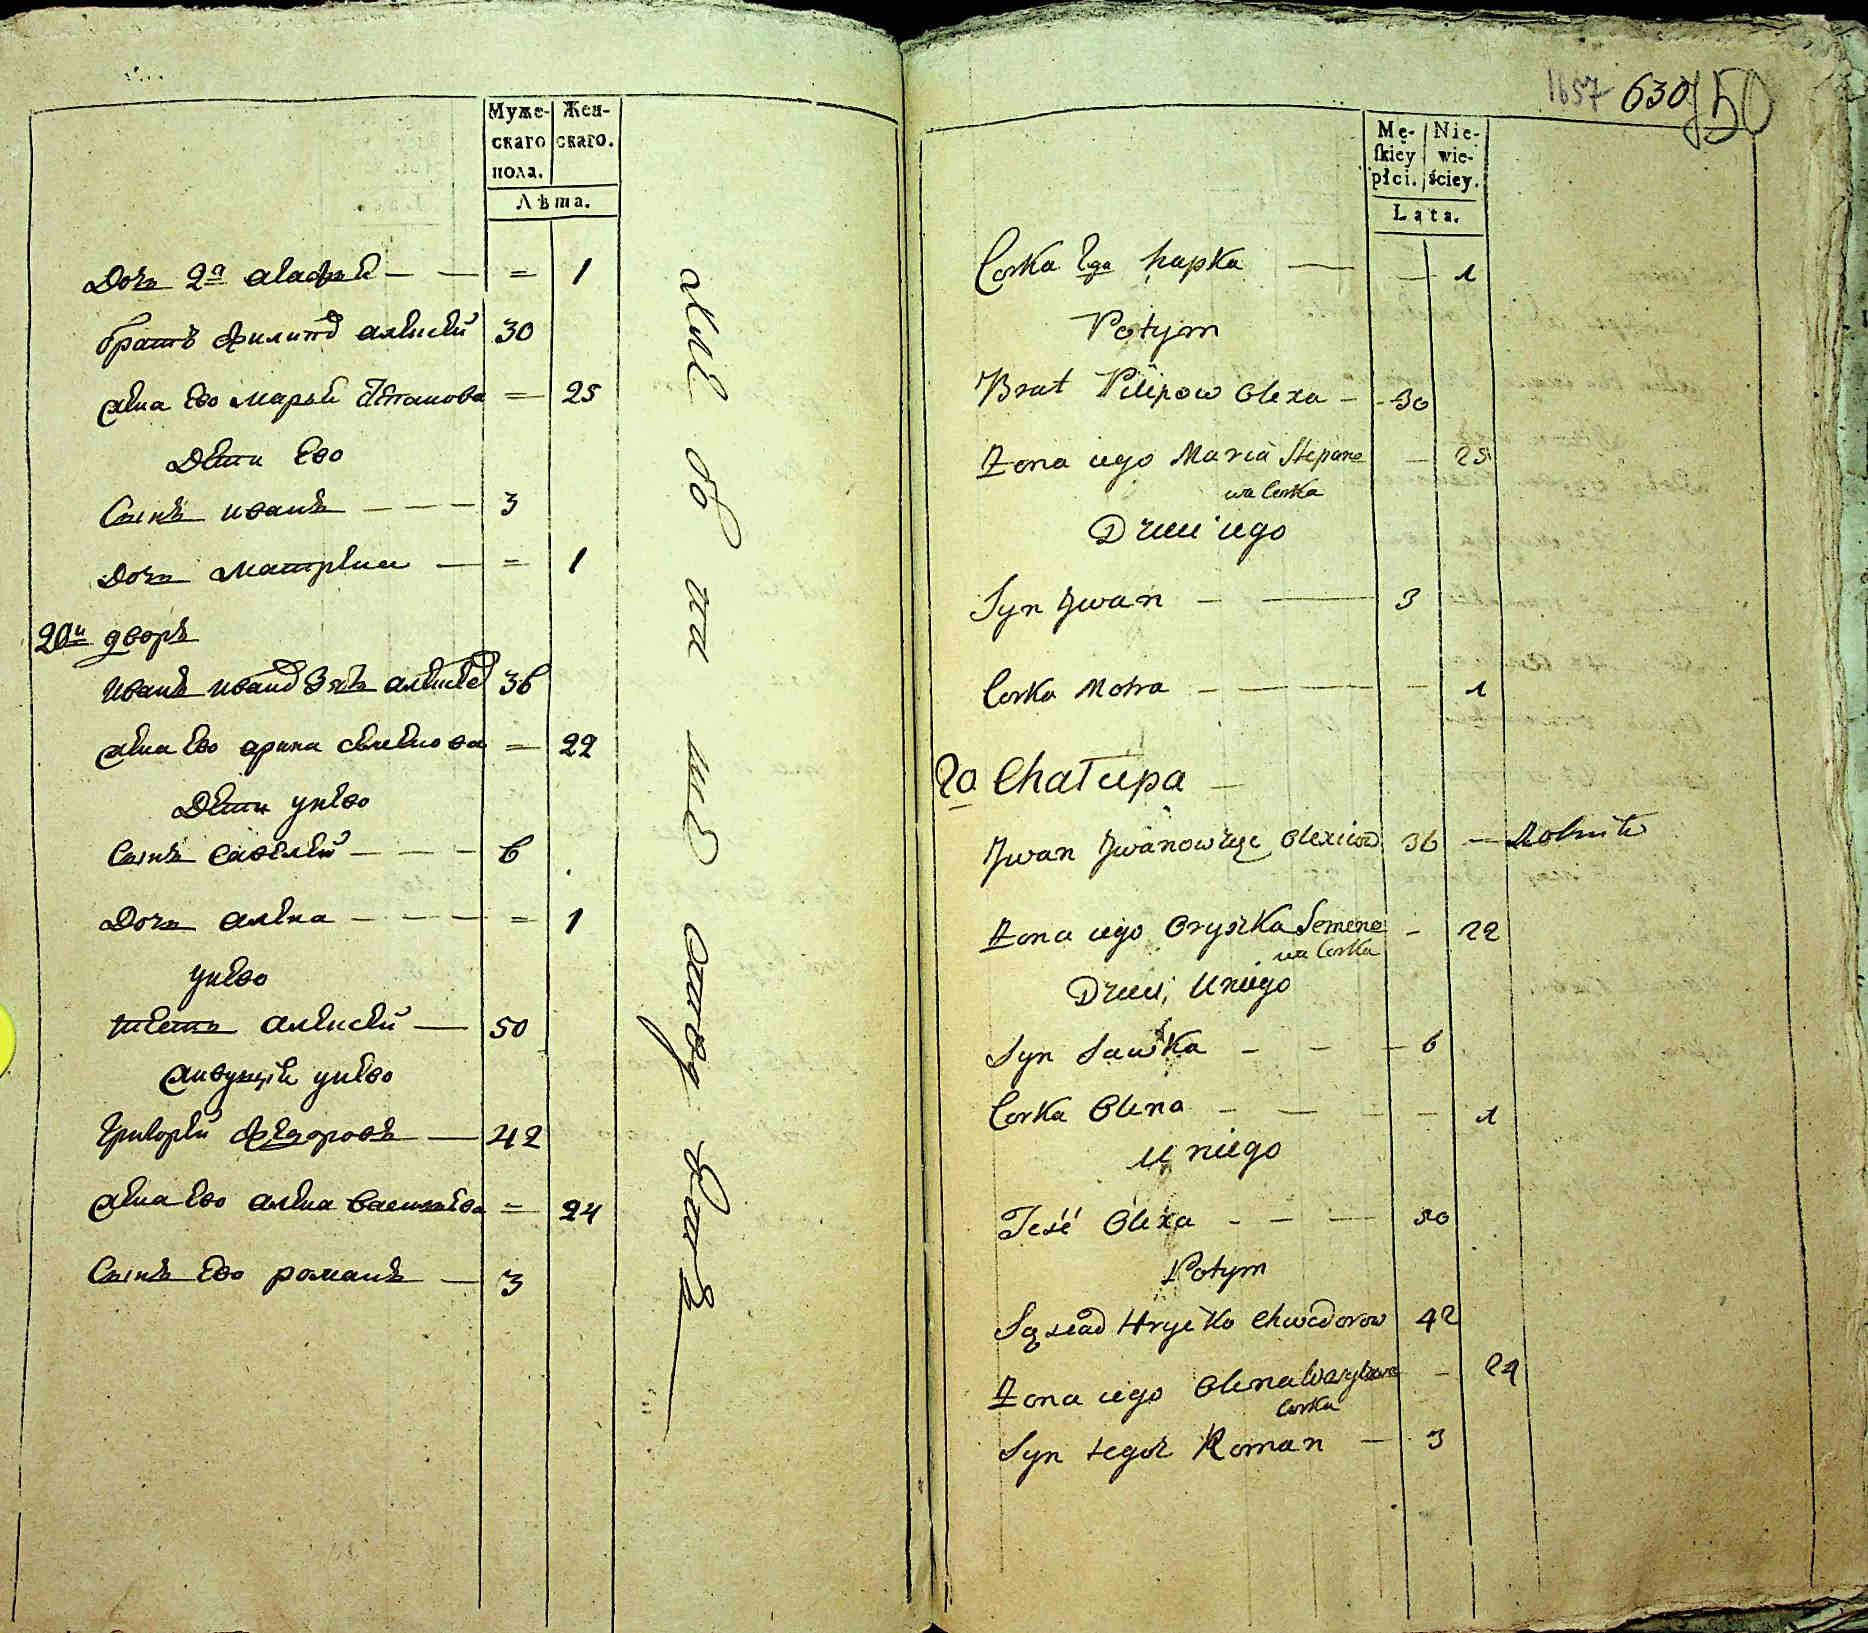 Муже-
скаго
пола.
Жен-
скаго.
Лѣта.
Дочь 2я агафия — — = 1
братъ филипъ алексеи 30
жена ево марья степанова = 25
Дети ево
Сынъ иванъ — — — 3
Дочь матрена — = 1
20й дворъ
иванъ ивановъ зять алексеевъ 36
жена ево орина семенова = 22
Дети унево
Сынъ савелей — — — 6
Дочь алена — — — = 1
унево
тесть алексей — 50
живущие унево
григорей федоровъ — 42
жена ево алена васильева = 24
Сынъ ево романъ — 3
1657 630 150
Mę-
skiey
płci.
Nie-
wie-
ściey.
Lata.
Corka 2ga hapka — — 1
Potym
Brat Pilipow Olexa — 30
Zona iego Maria Stepano — 25
wa Corka
Dzieci iego
Syn Jwan — — 3
Corka Motra — — — — — 1
20 Chałupa —
Jwan Jwanow Zięc Olexiow 36 — Rolnik
Zona iego Oryszka Semeno — 22
wa Corka
Dzieci, Uniego
Syn Sawka — — — 6
Corka Olena — — — — 1
U niego
Teść Olexa — — — 50
Potym
Sąsiad Hryćko Chwedorow 42
Zona iego Olena Wasylowa — 24
Corka
Syn tegoz Roman — 3